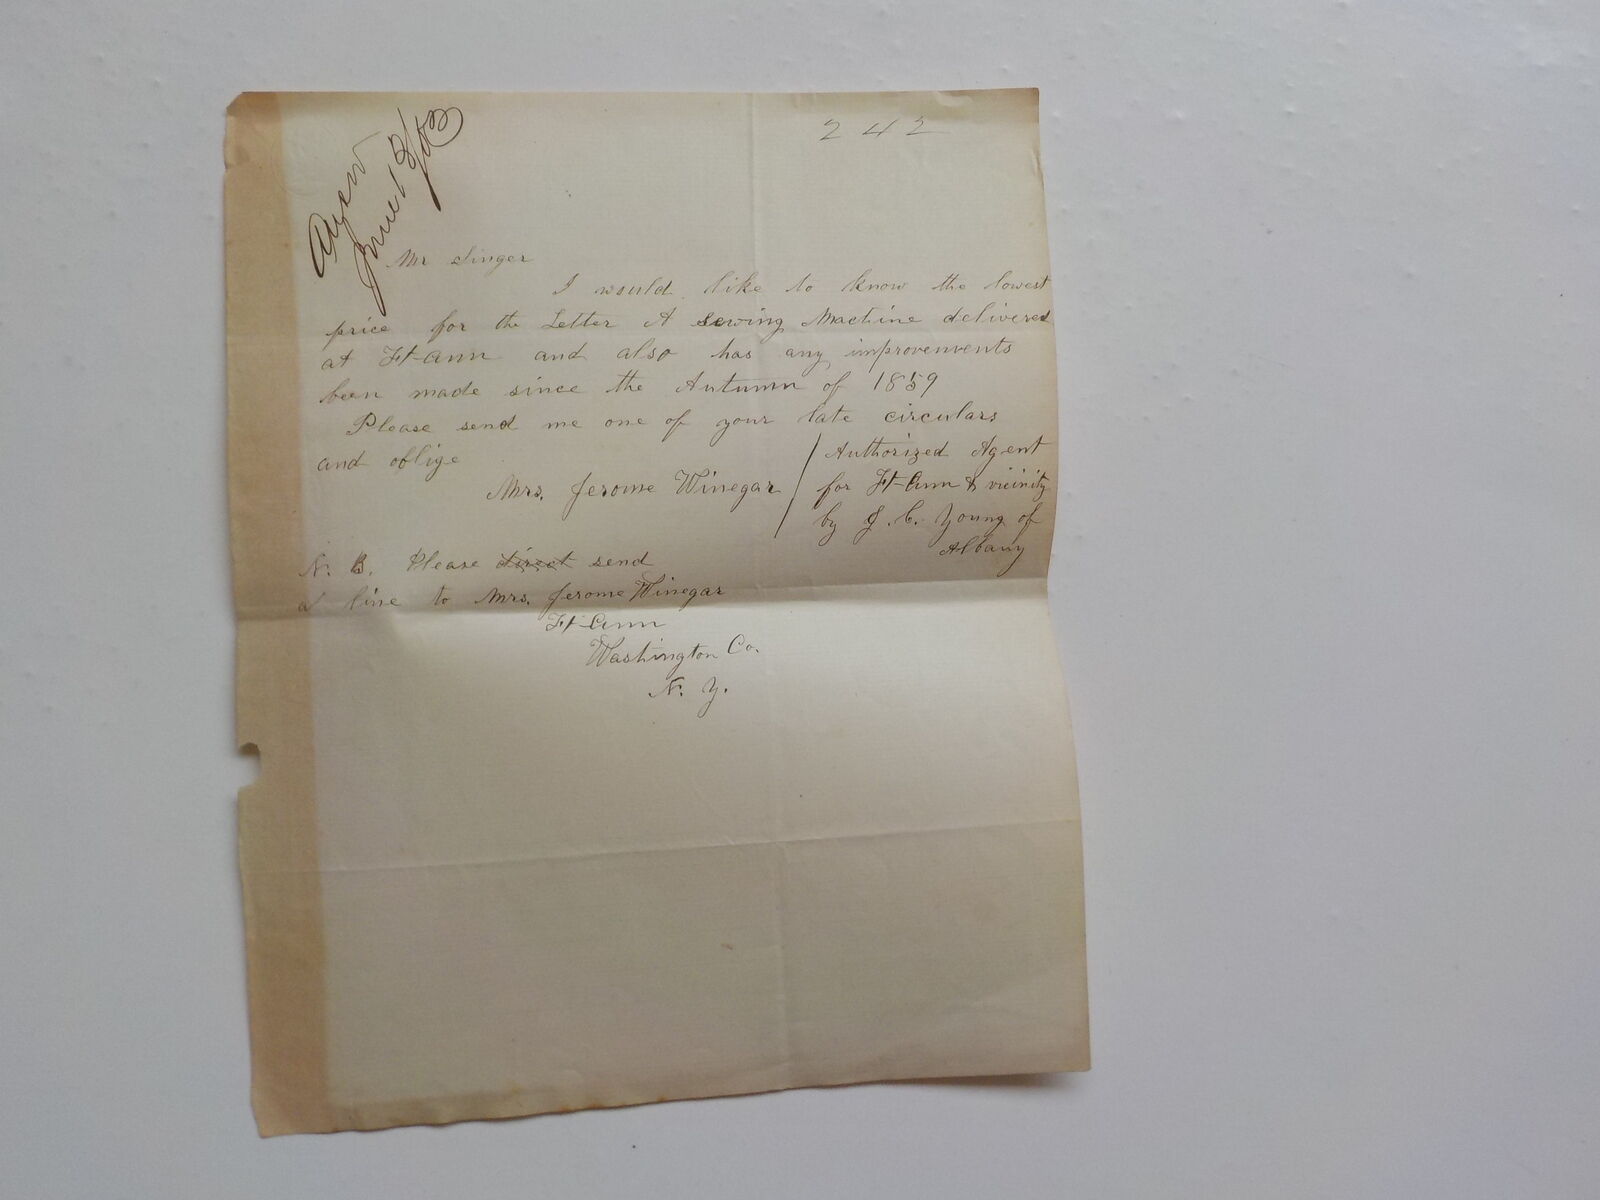 242
June 18/63
Mr Singer
I would like to know the lowest
price for the Letter A Sewing Machine delivered
at Ft Ann and also has any improvements
been made since the Autumn of 1859
Please send me one of your late circulars
and oblige
Mrs. Jerome Winegar
Authorized Agent
for Ft Ann & vicinity
by J. C. Young of
Albany
N. B. Please direct send
a line to Mrs. Jerome Winegar
Ft Ann
Washington Co.
N. Y.